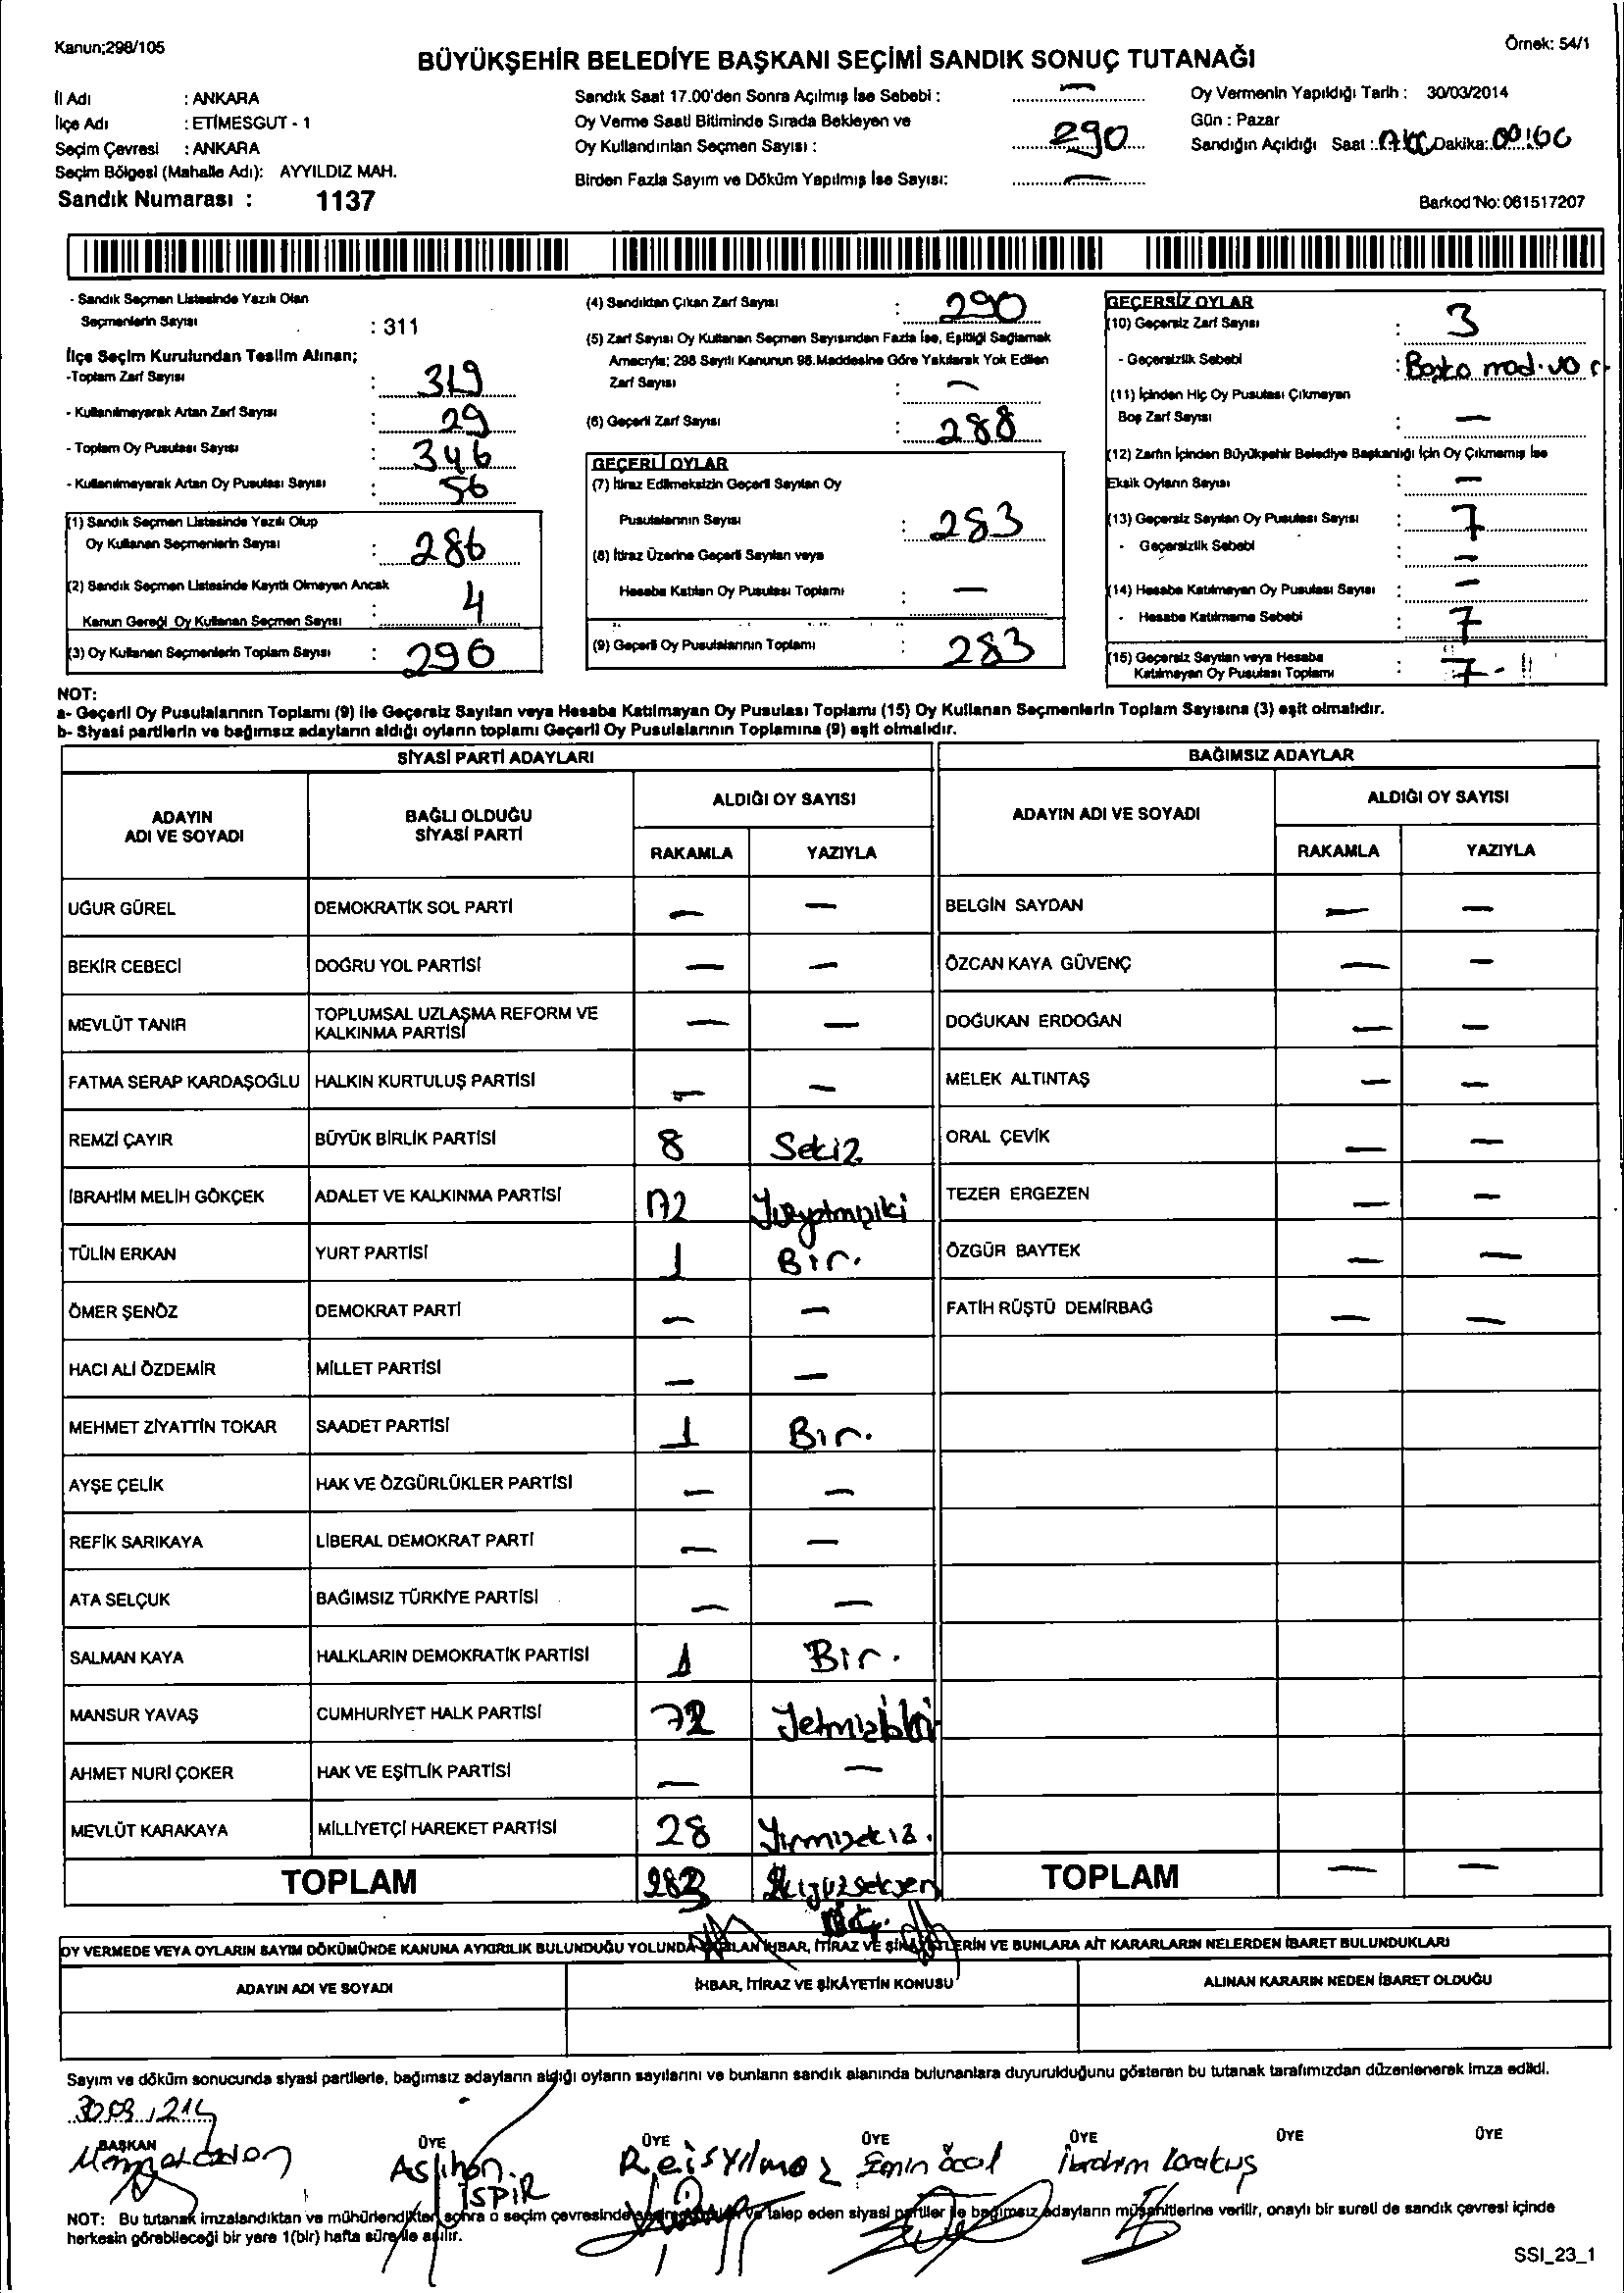 Kanun;298/105
Örnek: 54/1
BÜYÜKŞEHİR BELEDİYE BAŞKANI SEÇİMİ SANDIK SONUÇ TUTANAĞI
İl Adı : ANKARA
İlçe Adı : ETİMESGUT - 1
Seçim Çevresi : ANKARA
Seçim Bölgesi (Mahalle Adı): AYYILDIZ MAH.
Sandık Numarası : 1137
Sandık Saat 17.00'den Sonra Açılmış İse Sebebi : —
Oy Verme Saati Bitiminde Sırada Bekleyen ve
Oy Kullandırılan Seçmen Sayısı : 290
Birden Fazla Sayım ve Döküm Yapılmış İse Sayısı: —
Oy Vermenin Yapıldığı Tarih : 30/03/2014
Gün : Pazar
Sandığın Açıldığı Saat : Dakika:
Barkod No: 061517207
- Sandık Seçmen Listesinde Yazılı Olan
Seçmenlerin Sayısı : 311
İlçe Seçim Kurulundan Teslim Alınan;
-Toplam Zarf Sayısı : 319
- Kullanılmayarak Artan Zarf Sayısı : 29
- Toplam Oy Pusulası Sayısı : 346
- Kullanılmayarak Artan Oy Pusulası Sayısı : 56
(1) Sandık Seçmen Listesinde Yazılı Olup
Oy Kullanan Seçmenlerin Sayısı : 286
(2) Sandık Seçmen Listesinde Kayıtlı Olmayan Ancak
Kanun Gereği Oy Kullanan Seçmen Sayısı : 4
(3) Oy Kullanan Seçmenlerin Toplam Sayısı : 290
(4) Sandıktan Çıkan Zarf Sayısı : 290
(5) Zarf Sayısı Oy Kullanan Seçmen Sayısından Fazla İse, Eşitliği Sağlamak
Amacıyla; 298 Sayılı Kanunun 98.Maddesine Göre Yakılarak Yok Edilen
Zarf Sayısı : —
(6) Geçerli Zarf Sayısı : 288
GEÇERLİ OYLAR
(7) İtiraz Edilmeksizin Geçerli Sayılan Oy
Pusulalarının Sayısı : 283
(8) İtiraz Üzerine Geçerli Sayılan veya
Hesaba Katılan Oy Pusulası Toplamı : —
(9) Geçerli Oy Pusulalarının Toplamı : 283
GEÇERSİZ OYLAR
(10) Geçersiz Zarf Sayısı : 3
- Geçersizlik Sebebi : Başka
(11) İçinden Hiç Oy Pusulası Çıkmayan
Boş Zarf Sayısı : —
(12) Zarfın İçinden Büyükşehir Belediye Başkanlığı İçin Oy Çıkmamış İse
Eksik Oyların Sayısı : —
(13) Geçersiz Sayılan Oy Pusulası Sayısı : 7
- Geçersizlik Sebebi : —
(14) Hesaba Katılmayan Oy Pusulası Sayısı : —
- Hesaba Katılmama Sebebi : 7
(15) Geçersiz Sayılan veya Hesaba
Katılmayan Oy Pusulası Toplamı : 7
NOT:
a- Geçerli Oy Pusulalarının Toplamı (9) ile Geçersiz Sayılan veya Hesaba Katılmayan Oy Pusulası Toplamı (15) Oy Kullanan Seçmenlerin Toplam Sayısına (3) eşit olmalıdır.
b- Siyasi partilerin ve bağımsız adayların aldığı oyların toplamı Geçerli Oy Pusulalarının Toplamına (9) eşit olmalıdır.
SİYASİ PARTİ ADAYLARI
ADAYIN ADI VE SOYADI
BAĞLI OLDUĞU SİYASİ PARTİ
ALDIĞI OY SAYISI
RAKAMLA YAZIYLA
UĞUR GÜREL DEMOKRATİK SOL PARTİ — —
BEKİR CEBECİ DOĞRU YOL PARTİSİ — —
MEVLÜT TANIR TOPLUMSAL UZLAŞMA REFORM VE KALKINMA PARTİSİ — —
FATMA SERAP KARDAŞOĞLU HALKIN KURTULUŞ PARTİSİ — —
REMZİ ÇAYIR BÜYÜK BİRLİK PARTİSİ 8 Sekiz
İBRAHİM MELİH GÖKÇEK ADALET VE KALKINMA PARTİSİ 172 Yüzyetmişiki
TÜLİN ERKAN YURT PARTİSİ 1 Bir.
ÖMER ŞENÖZ DEMOKRAT PARTİ — —
HACI ALİ ÖZDEMİR MİLLET PARTİSİ — —
MEHMET ZİYATTİN TOKAR SAADET PARTİSİ 1 Bir.
AYŞE ÇELİK HAK VE ÖZGÜRLÜKLER PARTİSİ — —
REFİK SARIKAYA LİBERAL DEMOKRAT PARTİ — —
ATA SELÇUK BAĞIMSIZ TÜRKİYE PARTİSİ — —
SALMAN KAYA HALKLARIN DEMOKRATİK PARTİSİ 1 Bir.
MANSUR YAVAŞ CUMHURİYET HALK PARTİSİ 72
AHMET NURİ ÇOKER HAK VE EŞİTLİK PARTİSİ — —
MEVLÜT KARAKAYA MİLLİYETÇİ HAREKET PARTİSİ 28 Yirmisekiz.
TOPLAM 283 İkiyüzseksen üç.
BAĞIMSIZ ADAYLAR
ADAYIN ADI VE SOYADI
ALDIĞI OY SAYISI
RAKAMLA YAZIYLA
BELGİN SAYDAN — —
ÖZCAN KAYA GÜVENÇ — —
DOĞUKAN ERDOĞAN — —
MELEK ALTINTAŞ — —
ORAL ÇEVİK — —
TEZER ERGEZEN — —
ÖZGÜR BAYTEK — —
FATİH RÜŞTÜ DEMİRBAĞ — —
TOPLAM — —
OY VERMEDE VEYA OYLARIN SAYIM DÖKÜMÜNDE KANUNA AYKIRILIK BULUNDUĞU YOLUNDA YAPILAN İHBAR, İTİRAZ VE ŞİKAYETLERİN VE BUNLARA AİT KARARLARIN NELERDEN İBARET BULUNDUKLARI
ADAYIN ADI VE SOYADI
İHBAR, İTİRAZ VE ŞİKÂYETİN KONUSU
ALINAN KARARIN NEDEN İBARET OLDUĞU
Sayım ve döküm sonucunda siyasi partilerle, bağımsız adayların aldığı oyların sayılarını ve bunların sandık alanında bulunanlara duyurulduğunu gösteren bu tutanak tarafımızdan düzenlenerek imza edildi.
30.03.214
BAŞKAN ÜYE ÜYE ÜYE ÜYE ÜYE ÜYE
Aslıhan İSPİR Reis Yılmaz Emin öcal İbrahim Karakuş
NOT: Bu tutanak imzalandıktan ve mühürlendikten sonra o seçim çevresinde talep eden siyasi partiler ile bağımsız adayların müşahitlerine verilir, onaylı bir sureti de sandık çevresi içinde
herkesin görebileceği bir yere 1(bir) hafta süre ile asılır.
SSI_23_1